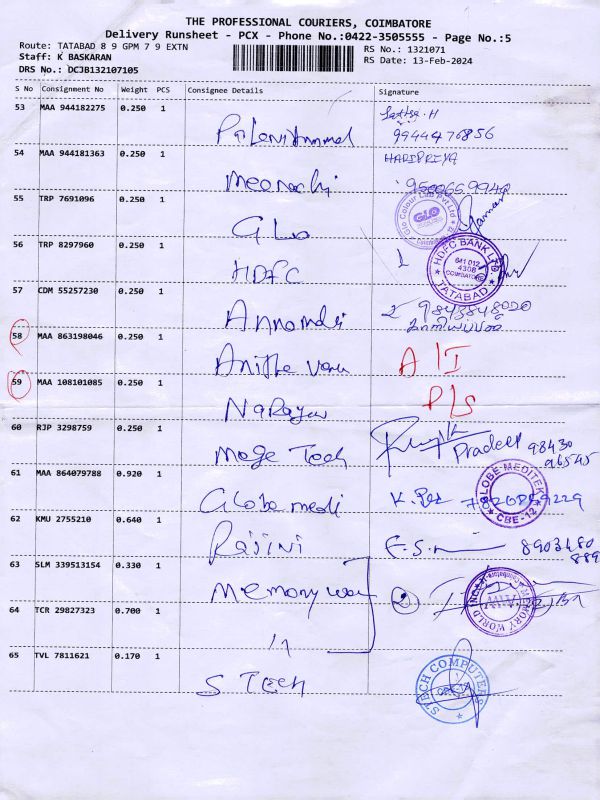 THE PROFESSIONAL COURIERS, COIMBATORE
Delivery Runsheet - PCX - Phone No.:0422-3505555 - Page No.:5
Route: TATABAD 8 9 GPM 7 9 EXTN
RS No.: 1321071
Staff: K BASKARAN
RS Date: 13-Feb-2024
DRS No.: DCJB132107105
S No Consignment No Weight PCS Consignee Details Signature
53 MAA 944182275 0.250 1
9944476856
54 MAA 944181363 0.250 1 Meenachi HARIPRIYA
55 TRP 7691096 0.250 1 GLO
56 TRP 8297960 0.250 1 HDFC 1
HDFC BANK LTD
641 012
4308
COIMBATORE
TATABAD
57 CDM 55257230 0.250 1 2 9843848020
58 MAA 863198046 0.250 1 Anitha A/I
59 MAA 108101085 0.250 1 P/S
60 RJP 3298759 0.250 1 Mage Tech Pradeep 98430
96545
61 MAA 864079788 0.920 1 Globe medi
GLOBE MEDITEK
CBE-12
62 KMU 2755210 0.640 1 Rajini 8903480
889
63 SLM 339513154 0.330 1 Memory 2
MEMORY WORLD
64 TCR 29827323 0.700 1 "
65 TVL 7811621 0.170 1 S Tech
STECH COMPUTERS